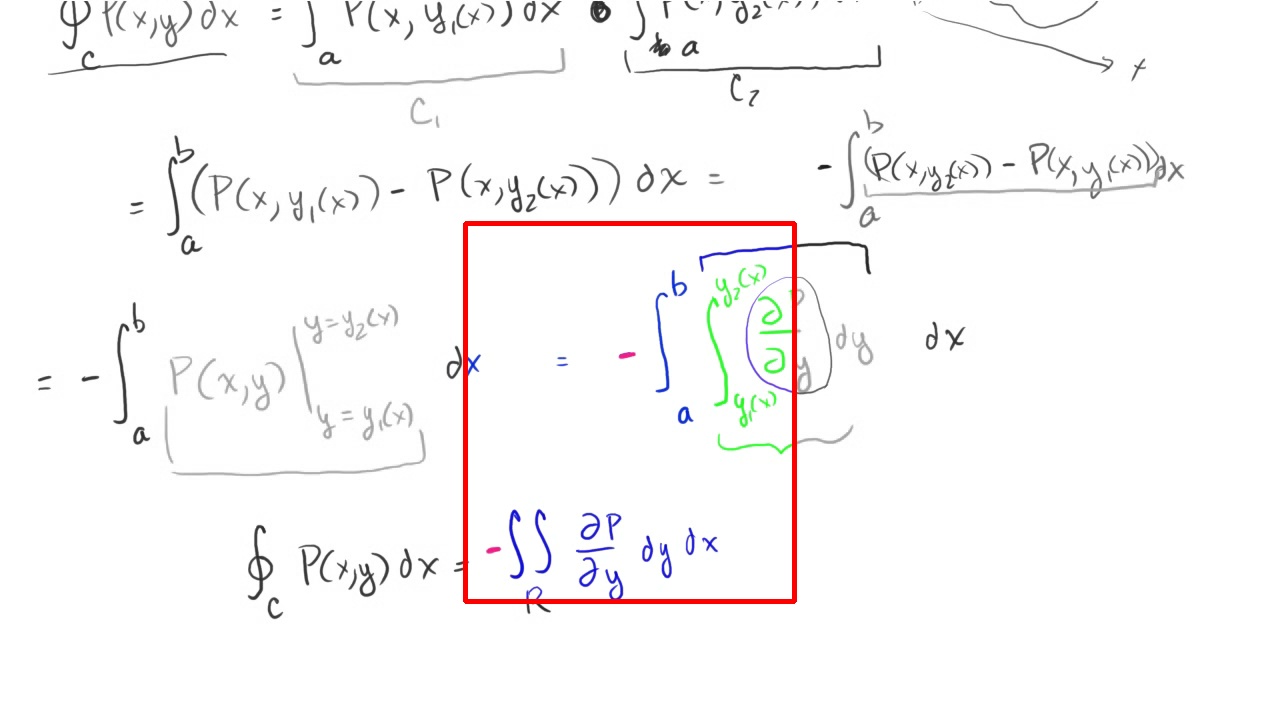 ∮_C P(x,y) dx = ∫_a P(x, y₁(x)) dx ∫_a
C₁ C₂ x
= ∫_a^b (P(x, y₁(x)) - P(x, y₂(x))) dx = - ∫_a^b (P(x, y₂(x)) - P(x, y₁(x))) dx
= - ∫_a^b P(x,y) |_{y = y₁(x)}^{y = y₂(x)} dx = - ∫_a^b ∫_{y₁(x)}^{y₂(x)} ∂P/∂y dy dx
∮_C P(x,y) dx = - ∬_R ∂P/∂y dy dx